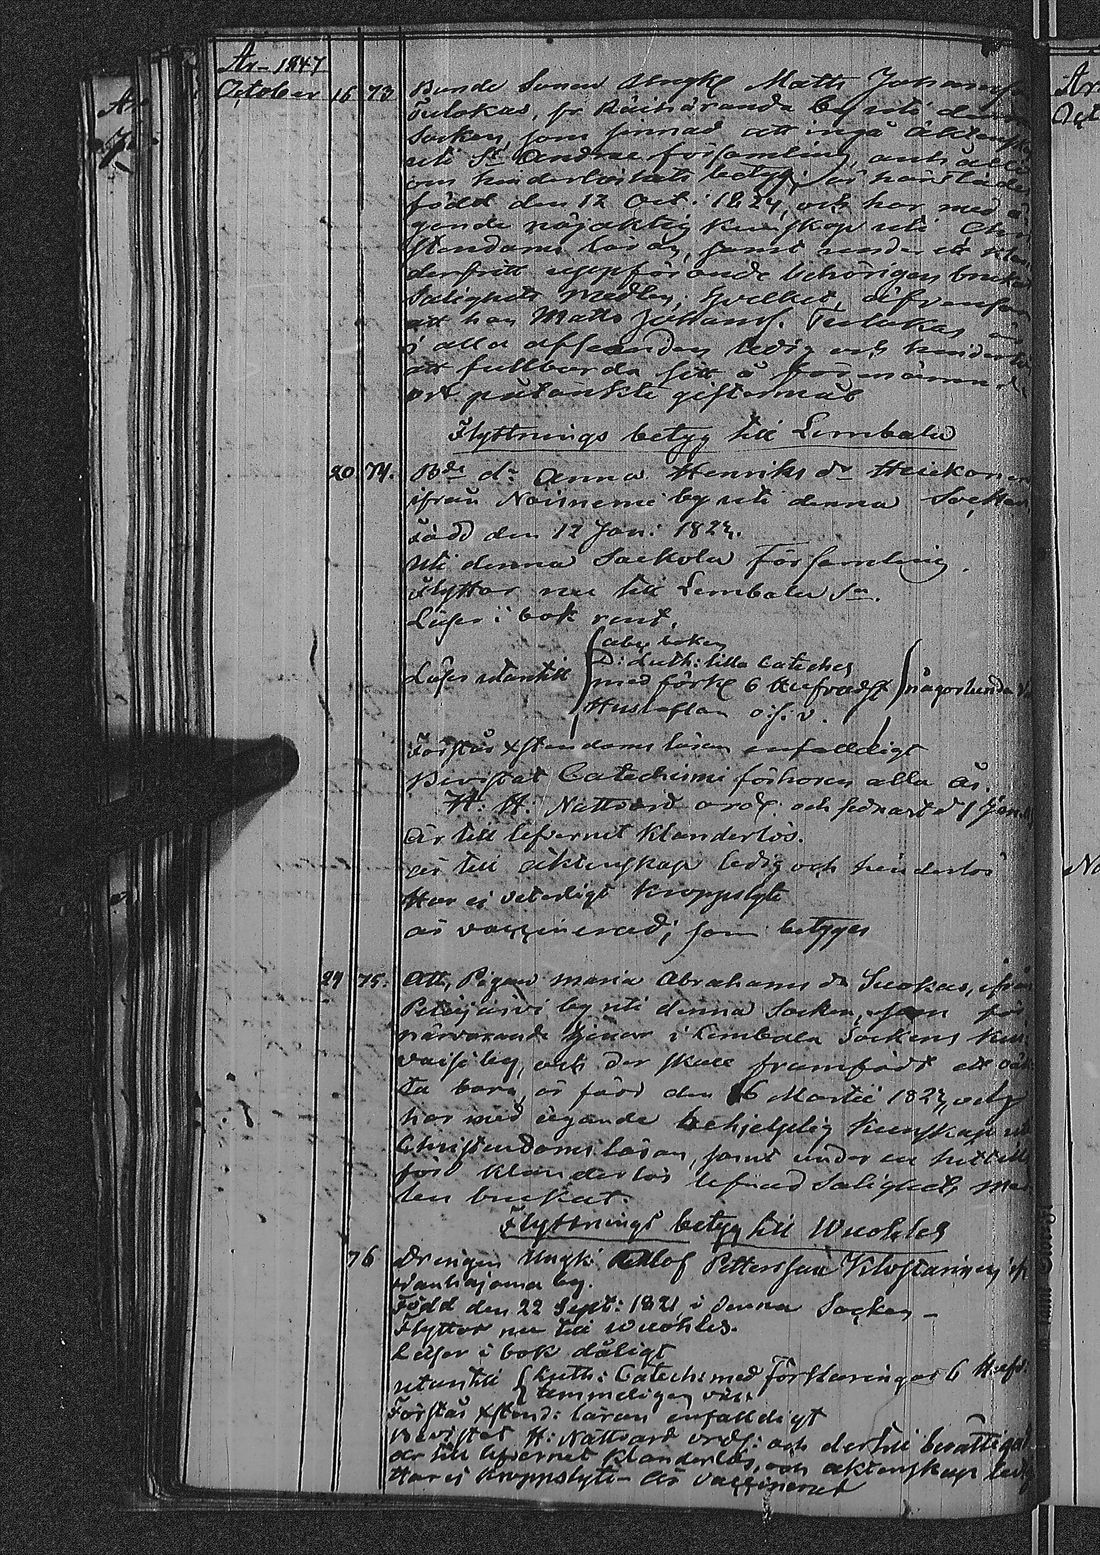 År 1847
October 16 73 Bonde Sonen Ungk: Matts Johansson
Tulokas, fr. Räihäranda By uti denna
Socken, som ärnad att ingå äktenskap
uti St. Andrae församling, anhåller
om hinderlöshets betyg; är härstädes
född den 12 Oct: 1824, och har med ä-
gande nöjaktig kunskap uti Chri-
stendoms läran, samt under ett klan-
derfritt uppförande behörigen brukat
Salighets medlen, hvilket, äfvensom
att han Matts Johanss. Tulokas är
i alla afseenden ledig och hinderlös
att fullborda sitt å förenämnde
ort påtänkte giftermål
Flyttnings betyg till Lembala
20. 74. Bde dr Anna Henriks dr Heickonen
ifrån Noisniemi by uti denna Socken
född den 12 Jan: 182
uti denna Sackola Församling.
flyttar nu till Lembala Sn.
Läser i bok rent,
abc boken
D: Luth: lilla Cateches
Läser utantill med förkl 6 Hufvudst någorlunda
Hustaflan o.s.v.
Förstår Xstendoms läran enfalldigt
Bevistat Catechismi förhören alla år.
H. H. Nattvard ordl. och senast d 1
är till lefvernet klanderlös.
är till äktenskap ledig och hinderlös
Har ej veterligt kroppslyte
är vaccinerad; som betygas
24 75. Att, Pigan Maria Abrahams dr Suokas, ifrån
Petäjärvi by uti denna Socken, som för
närvarande tjenar i Lembala Sockens
by, och der skall framfödt ett oäk-
ta barn, är född den 16 Martii 182 och
har med ägande behjelplig kunskap uti
Christendoms läran, samt under en hittills
förd klanderlös lefnad Salighets med-
len brukat.
Flyttnings betyg till Wuohles
76 Drengen Ungk: Adlof Pettersson
by.
Född den 22 Sept: 1821 i denna Socken -
Flyttar nu till Wuohles.
Läser i bok dåligt
utantill Luth: Catech: med Förklaringar 6 Hufv.
temmeligen väl.
Förstår Xstend: läran enfalldigt
Bevistat H: Nattvard ordl: och dertill berättigad
är till lefvernet klanderlös, och äktenskap ledig
Har ej kroppslyte - är vaccinerat